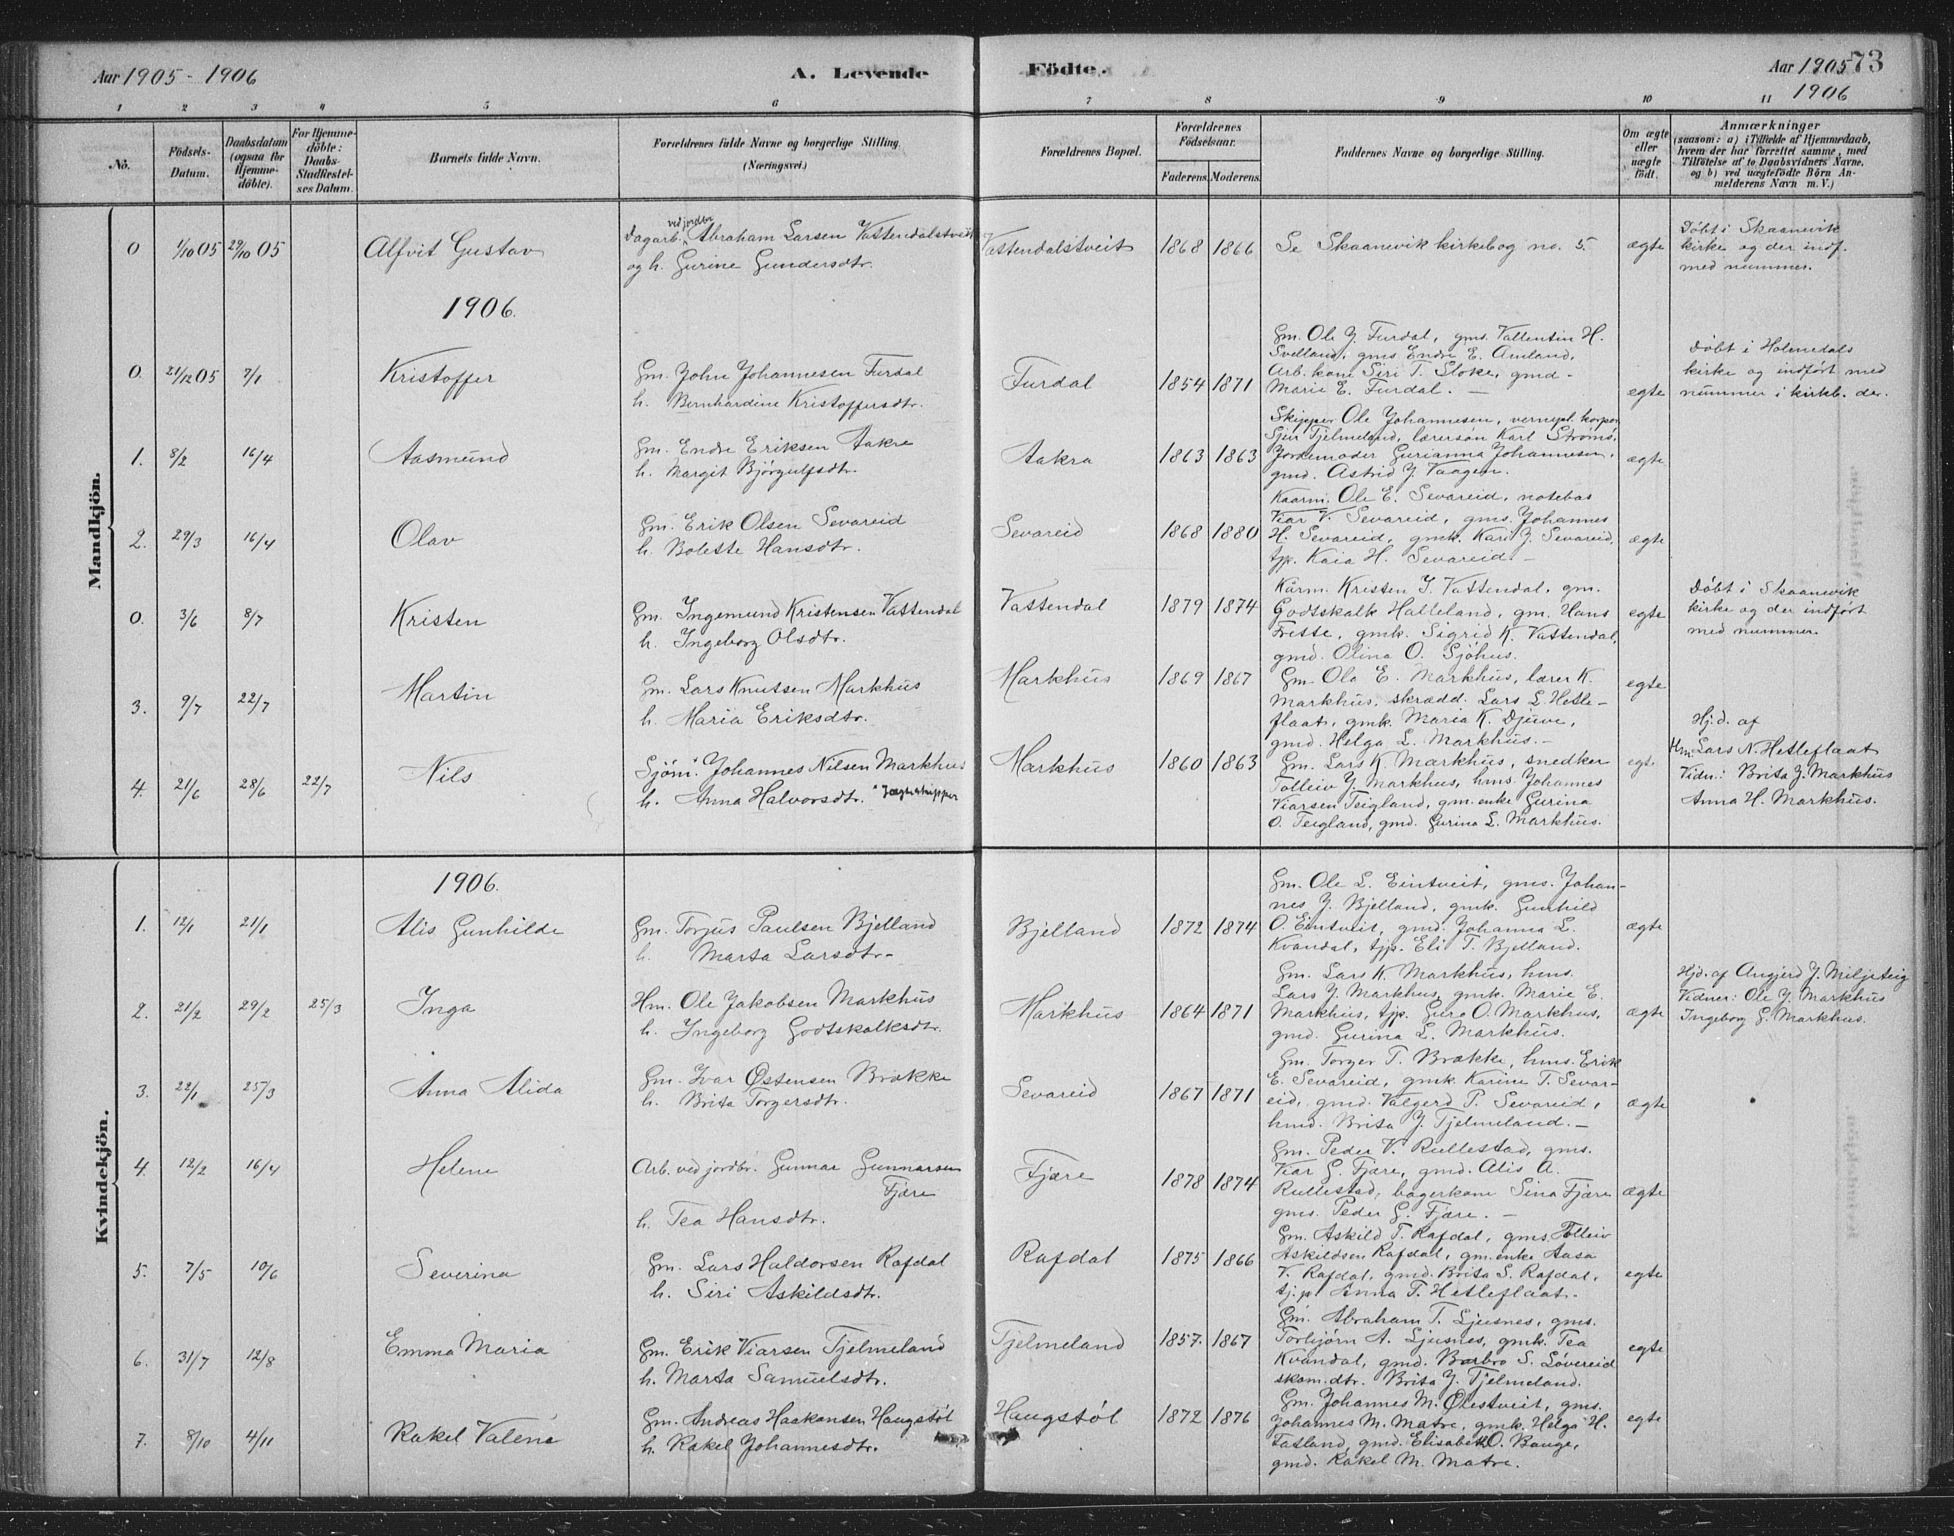 Aar 1905 - 1906
A. Levende Födte.
Aar 1905 73
1906
1 2 3 4 5 6 7 8 9 10 11
Nö.
Födsels-Datum.
Daabsdatum (ogsaa for Hjemme-döbte).
For Hjemme-döbte: Daabs-Stadfæstel-ses Datum.
Barnets fulde Navn.
Forældrenes fulde Navne og borgerlige Stilling. (Næringsvei.)
Forældrenes Bopæl.
Forældrenes Födselsaar.
Faderens. Moderens.
Faddernes Navne og borgerlige Stilling.
Om ægte eller uægte födt.
Anmærkninger
(saasom: a) i Tilfælde af Hjemmedaab, hvem der har forrettet samme, med Tilföielse af to Daabsvidners Navne, og b) ved uægtefödte Börn An-melderens Navn m. V.)
Mandkjön.
0 1/10 05 29/10 05 Alfvit Gustav
Dagarb. ved jordbr Abraham Larsen Vattendalstveit
og h. Gurine Gundersdtr.
Vattendalstveit 1868 1866
Se Skaanevik kirkebog no. 5.
ægte
Döbt i Skaanevik
kirke og der indf.
med nummer.
1906.
0. 21/12 05 7/1 Kristoffer
Gm. John Johannesen Furdal
h. Bernhardine Kristoffersdtr.
Furdal 1854 1871
Gm. Ole J. Furdal, gms. Vallentin H.
Svelland, gms Endre E. Amland,
Arb. kone Siri T. Stoke, gmd-
Marie E. Furdal. —
egte
Döbt i Holmedals
kirke og indfört med
nummer i kirkb. der.
1. 8/2 16/4 Aasmund
Gm. Endre Eriksen Aakra
h. Margit Björgulfsdtr.
Aakra 1863 1863
Skipper Ole Johannesen, vernepl. korpor.
Sjur Tjelmeland, lærersön Karl Ströms,
Jordemoder Gurianna Johannesen,
gmd. Astrid J. Vaagen.
ægte
2. 29/3 16/4 Olav
Gm. Erik Olsen Sevareid
h. Bolette Hansdtr.
Sevareid 1868 1880
Kaarm. Ole E. Sevareid, notebas
Viar V. Sevareid, gms. Johannes
H. Sevareid, gmk. Kari J. Sevareid,
tjp. Kaia H. Sevareid. —
ægte
0. 3/6 8/7 Kristen
Gm. Ingemund Kristensen Vattendal
h. Ingeborg Olsdtr.
Vattendal 1879 1874
Kårm. Kristen I. Vattendal, gm.
Godtskalk Halleland, gm. Hans
Frette, gmk. Sigrid K. Vattendal,
gmd. Olina O. Sjöhus.
egte
Döbt i Skaanevik
kirke og der indfört
med nummer.
3. 9/7 22/7 Martin
Gm. Lars Knutsen Markhus
h. Maria Eriksdtr.
Markhus 1869 1867
Gm. Ole E. Markhus, lærer K.
Markhus, skrædd. Lars L. Hetle-
flaat, gmk. Maria K. Djuve,
gmd. Helga L. Markhus. —
egte
4. 21/6 28/6 22/7 Nils
Sjöm. Johannes Nilsen Markhus
h. Anna Halvorsdtr. Jægteskipper
Markhus 1860 1863
Gm. Lars K. Markhus, snedker
Tolleiv J. Markhus, hms. Johannes
Viarsen Teigland, gm. enke Gurina
O. Teigland, gmd. Gurina L. Markhus.
egt.
Hj.d. af
Hm Lars N. Hetleflaat
Vidn.: Brita J. Markhus
Anna H. Markhus.
Kvindekjön.
1906.
1. 12/1 21/1 Alis Gunhilde
Gm. Torjus Paulsen Bjelland
h. Marta Larsdtr.
Bjelland 1872 1874
Gm. Ole L. Eintveit, gms. Johan-
nes J. Bjelland, gmk. Gunhild
O. Eintveit, gmd. Johanna L.
Kvandal, tjp. Eli T. Bjelland.
ægte
2. 21/2 29/2 25/3 Inga
Hm. Ole Jakobsen Markhus
h. Ingeborg Godtskalksdtr.
Markhus 1864 1871
Gm. Lars K. Markhus, hms.
Lars J. Markhus, gmk. Marie E.
Markhus, tjp. Guro O. Markhus,
gmd. Gurina L. Markhus.
ægte
Hjd. af Angjerd J. Miljeteig
Vidner: Ole J. Markhus
Ingeborg G. Markhus.
3. 22/1 25/3 Anna Alida
Gm. Ivar Østensen Brække
h. Brita Torgersdtr.
Sevareid 1867 1871
Gm. Torger T. Brække, hms. Erik
E. Sevareid, gmk. Karine T. Sevar-
eid, gmd. Valgerd P. Sevareid,
hmd. Brita J. Tjelmeland. —
ægte
4 12/2 16/4 Helene
Arb. ved jordbr. Gunnar Gunnarsen
Fjære
h. Tea Hansdtr.
Fjære 1878 1874
Gm. Peder V. Rullestad, gms.
Viar G. Fjære, gmd. Alis A.
Rullestad, bagerkone Sina Fjære
gms. Peder G. Fjære. —
ægte
5. 7/5 10/6 Severina
Gm. Lars Haldorsen Rafdal
h. Siri Askildsdtr.
Rafdal 1875 1866
Gm. Askild T. Rafdal, gms. Tolleiv
Askildsen Rafdal, gm. enke Aasa
V. Rafdal, gmd. Brita S. Rafdal,
tj.p. Anna T. Hetleflaat.
egte
6. 31/7 12/8 Emma Maria
Gm. Erik Viarsen Tjelmeland
h. Marta Samuelsdtr.
Tjelmeland 1857. 1867
Gm. Abraham T. Ljusnes, gms.
Torbjörn A. Ljusnes, gmk. Tea
Kvandal, gmd. Barbro S. Løvereid
skom.dtr. Brita J. Tjelmeland.
egte
7. 8/10 4/11 Rakel Valene
Gm. Andreas Haakonsen Haugstøl
h. Rakel Johannesdtr.
Haugstøl 1872 1876
Gm. Johannes M. Ølestveit, gms.
Johannes M. Matre, gmk. Helga H.
Fatland, gmd. Elisabeth O. Bauge,
gmd. Rakel M. Matre.
egte